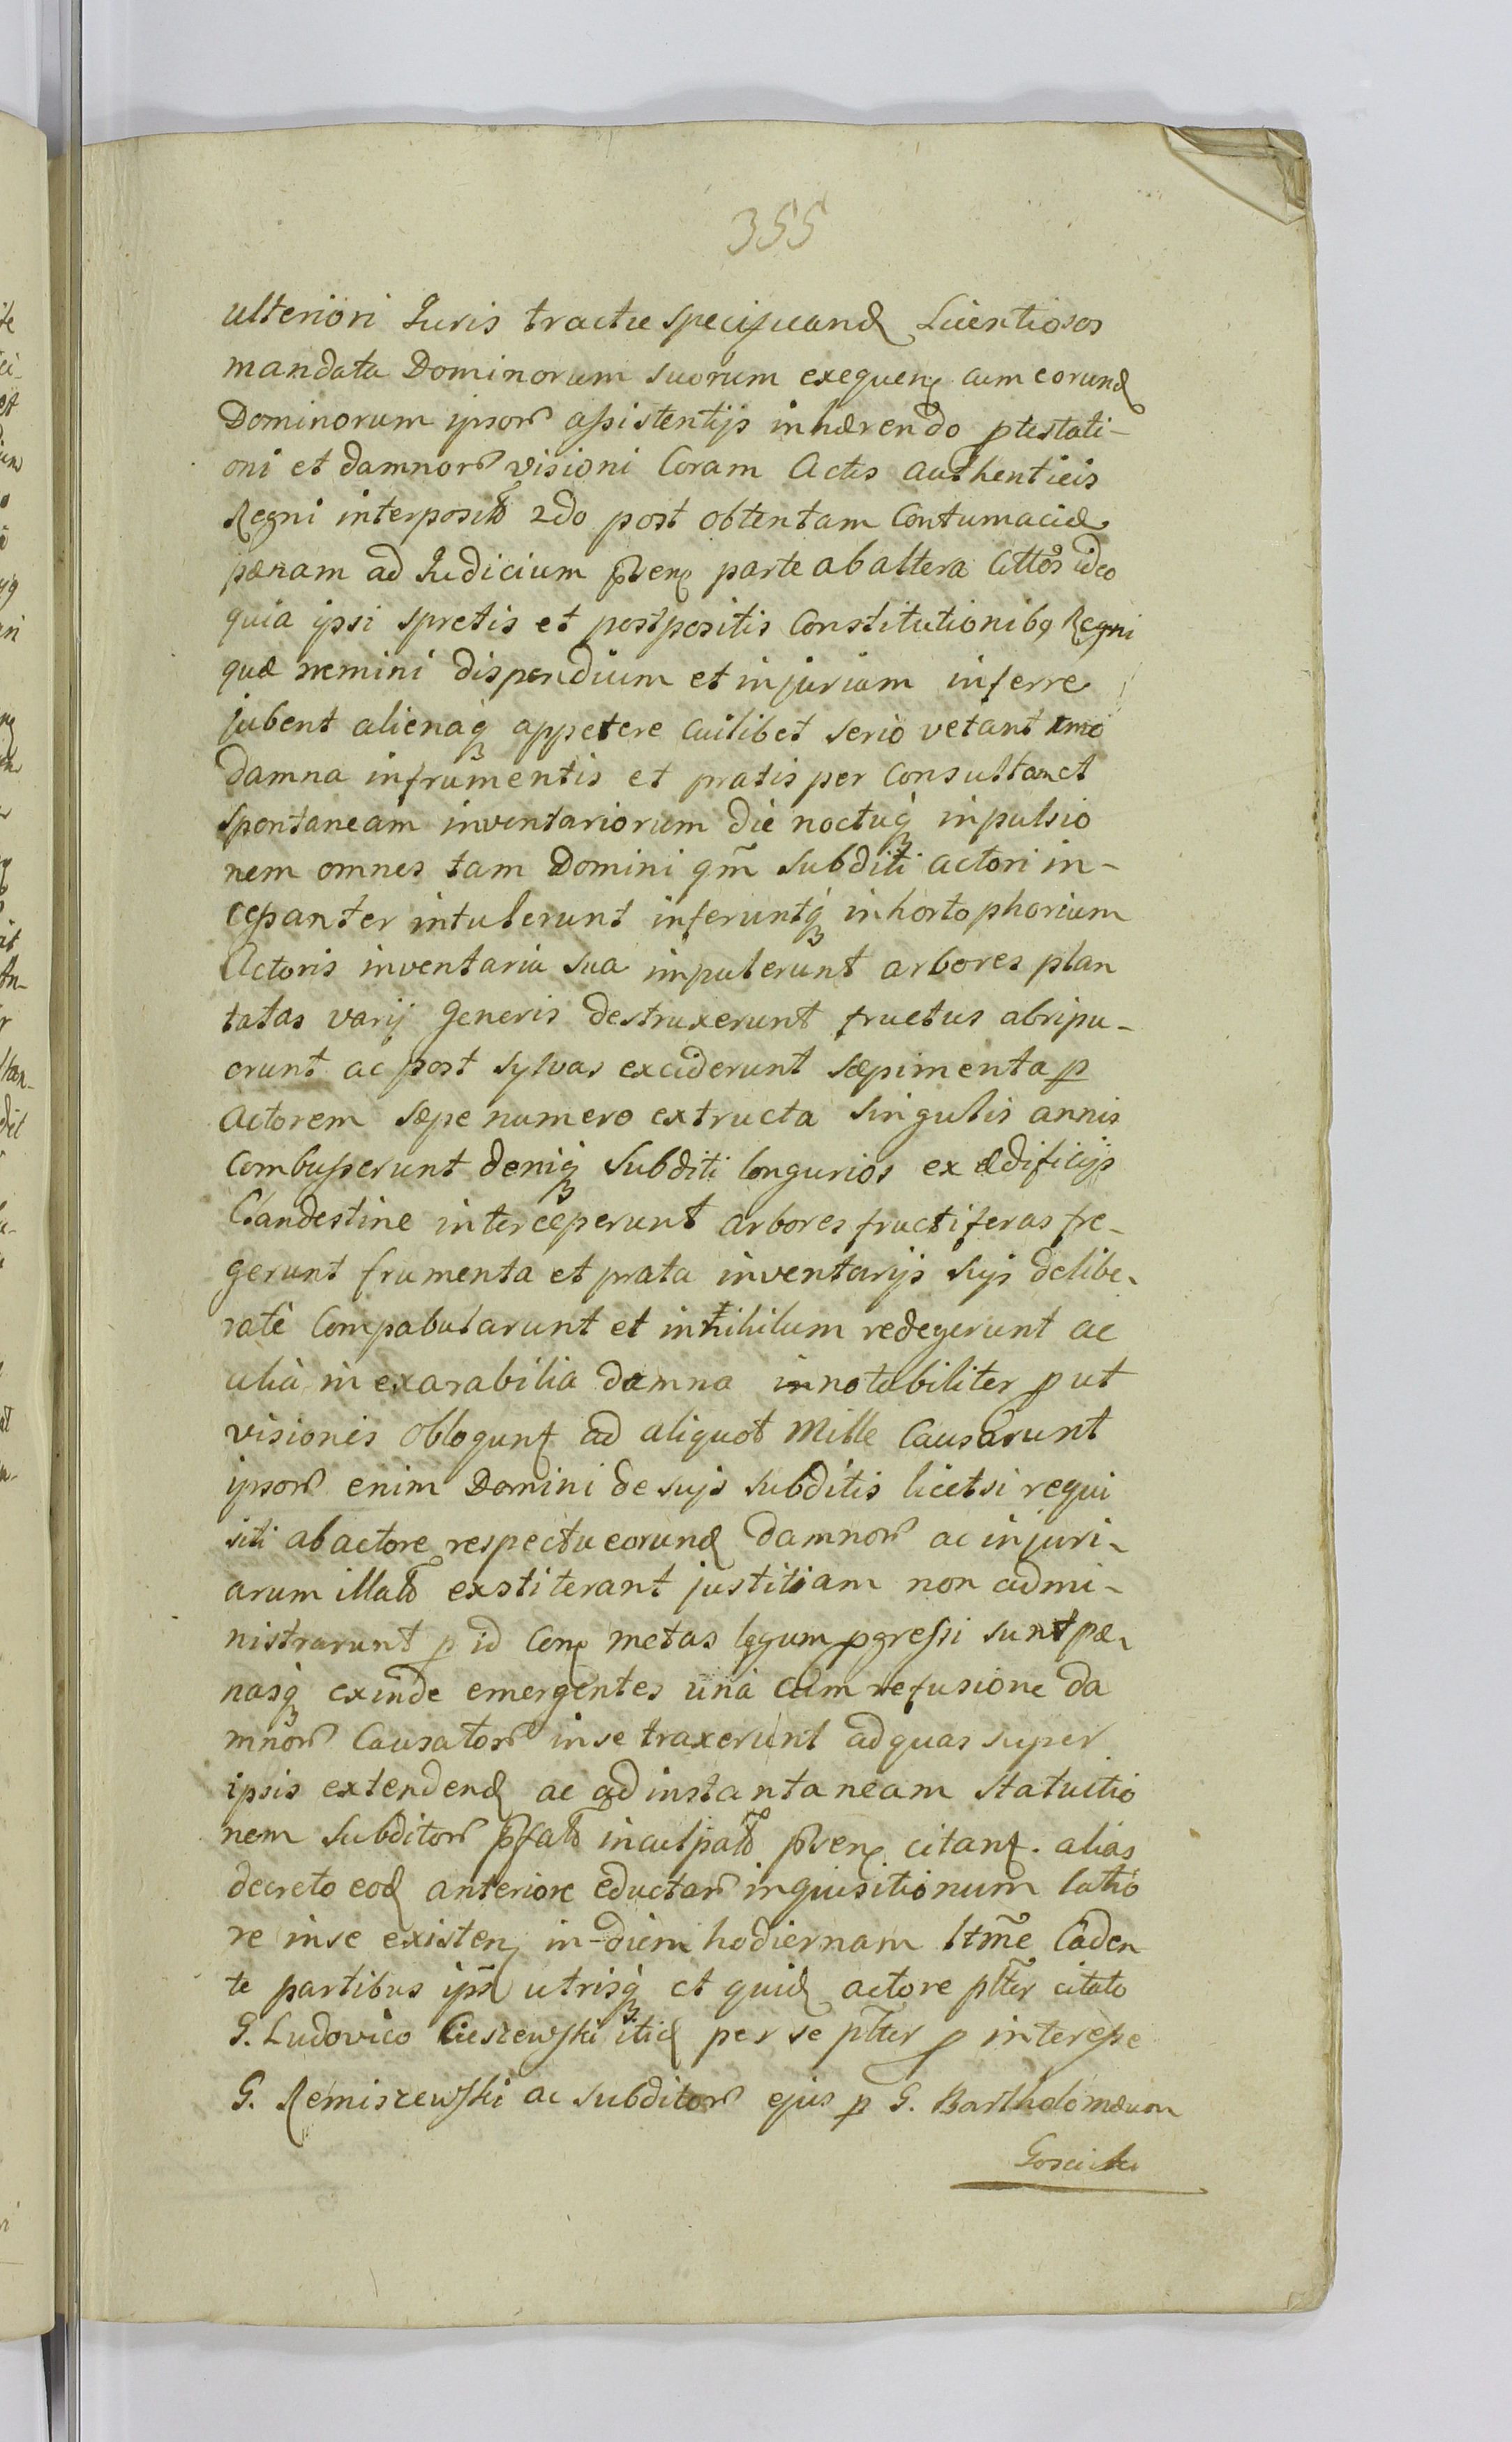 355
ulteriori Juris tractu specificand Licentiosos
mandata Dominorum suorum exequen cum eorund
Dominorum ipsor assistentijs inhærendo ptestati-
oni et damnor visioni Coram Actis authenticis
Regni interposit 2do post obtentam Contumaciæ
pænam ad Judicium pñsen parte ab altera Cittos ideo
quia ipsi spretis et postpositis Constitutionibq Regni
quæ nemini dispendium et injuriam inferre
jubent alienaq appetere cuilibet serio vetant imo
damna in frumentis et pratis per Consultam et
spontaneam inventariorum die noctuq inpulsio
nem omnes tam Domini qm subditi actori in-
cessanter intulerunt inferuntq in hortophorium
Actoris inventaria sua impulerunt arbores plan
tatas varij generis destruxerunt fructus abripu-
erunt ac post sylvas exciderunt sæpimenta p
Actorem sæpe numero extructa singulis annis
combusserunt deniq subditi longurios ex ædificijs
Clandestine interceperunt arbores fructiferas fre-
gerunt frumenta et prata inventarijs suis delibe-
ratè Compabularunt et in nihilum redegerunt ac
alia in exarabilia damna innotabiliter put
visionis obloqunt ad aliquot Mille Causarunt
ipsor enim Domini de suis subditis licet si requi
siti ab actore respectu eorund damnor ac injuri-
arum illat exstiterant justitiam non admi-
nistrarunt p id Cen metas legum pgressi sunt pæ-
nasq exinde emergentes unà cum refusione da
mnor Causator in se traxerunt ad quas super
ipsis extendend ac ad instantaneam statuitio
nem subditor pfat inculpat pñsen citant. alias
decreto eod anteriore eductar inquisitionum latio
re in se existen in diem hodiernam ltme Caden
te partibus ips utrisq et quid actore plter citato
G. Ludovico Cieszewski itid per se plter p interesse
G. Remiszewski ac subditor ejus p G. Bartholomæum
Goscicki